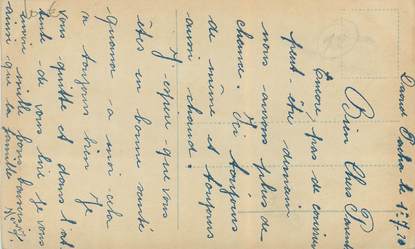 Daoud Pacha le 1.7.20
Bien Chers Parents
Encore pas de courrier
peut-être demain
nous aurons plus de
chance. Ici toujours
de même et toujours
aussi chaud.
J'espère que vous
êtes en bonne santé
quand à moi cela
va toujours bien Je
vous quitte et dans l'at
tente de vous lire je vous
envoie mille bons baisers
ainsi que la famille